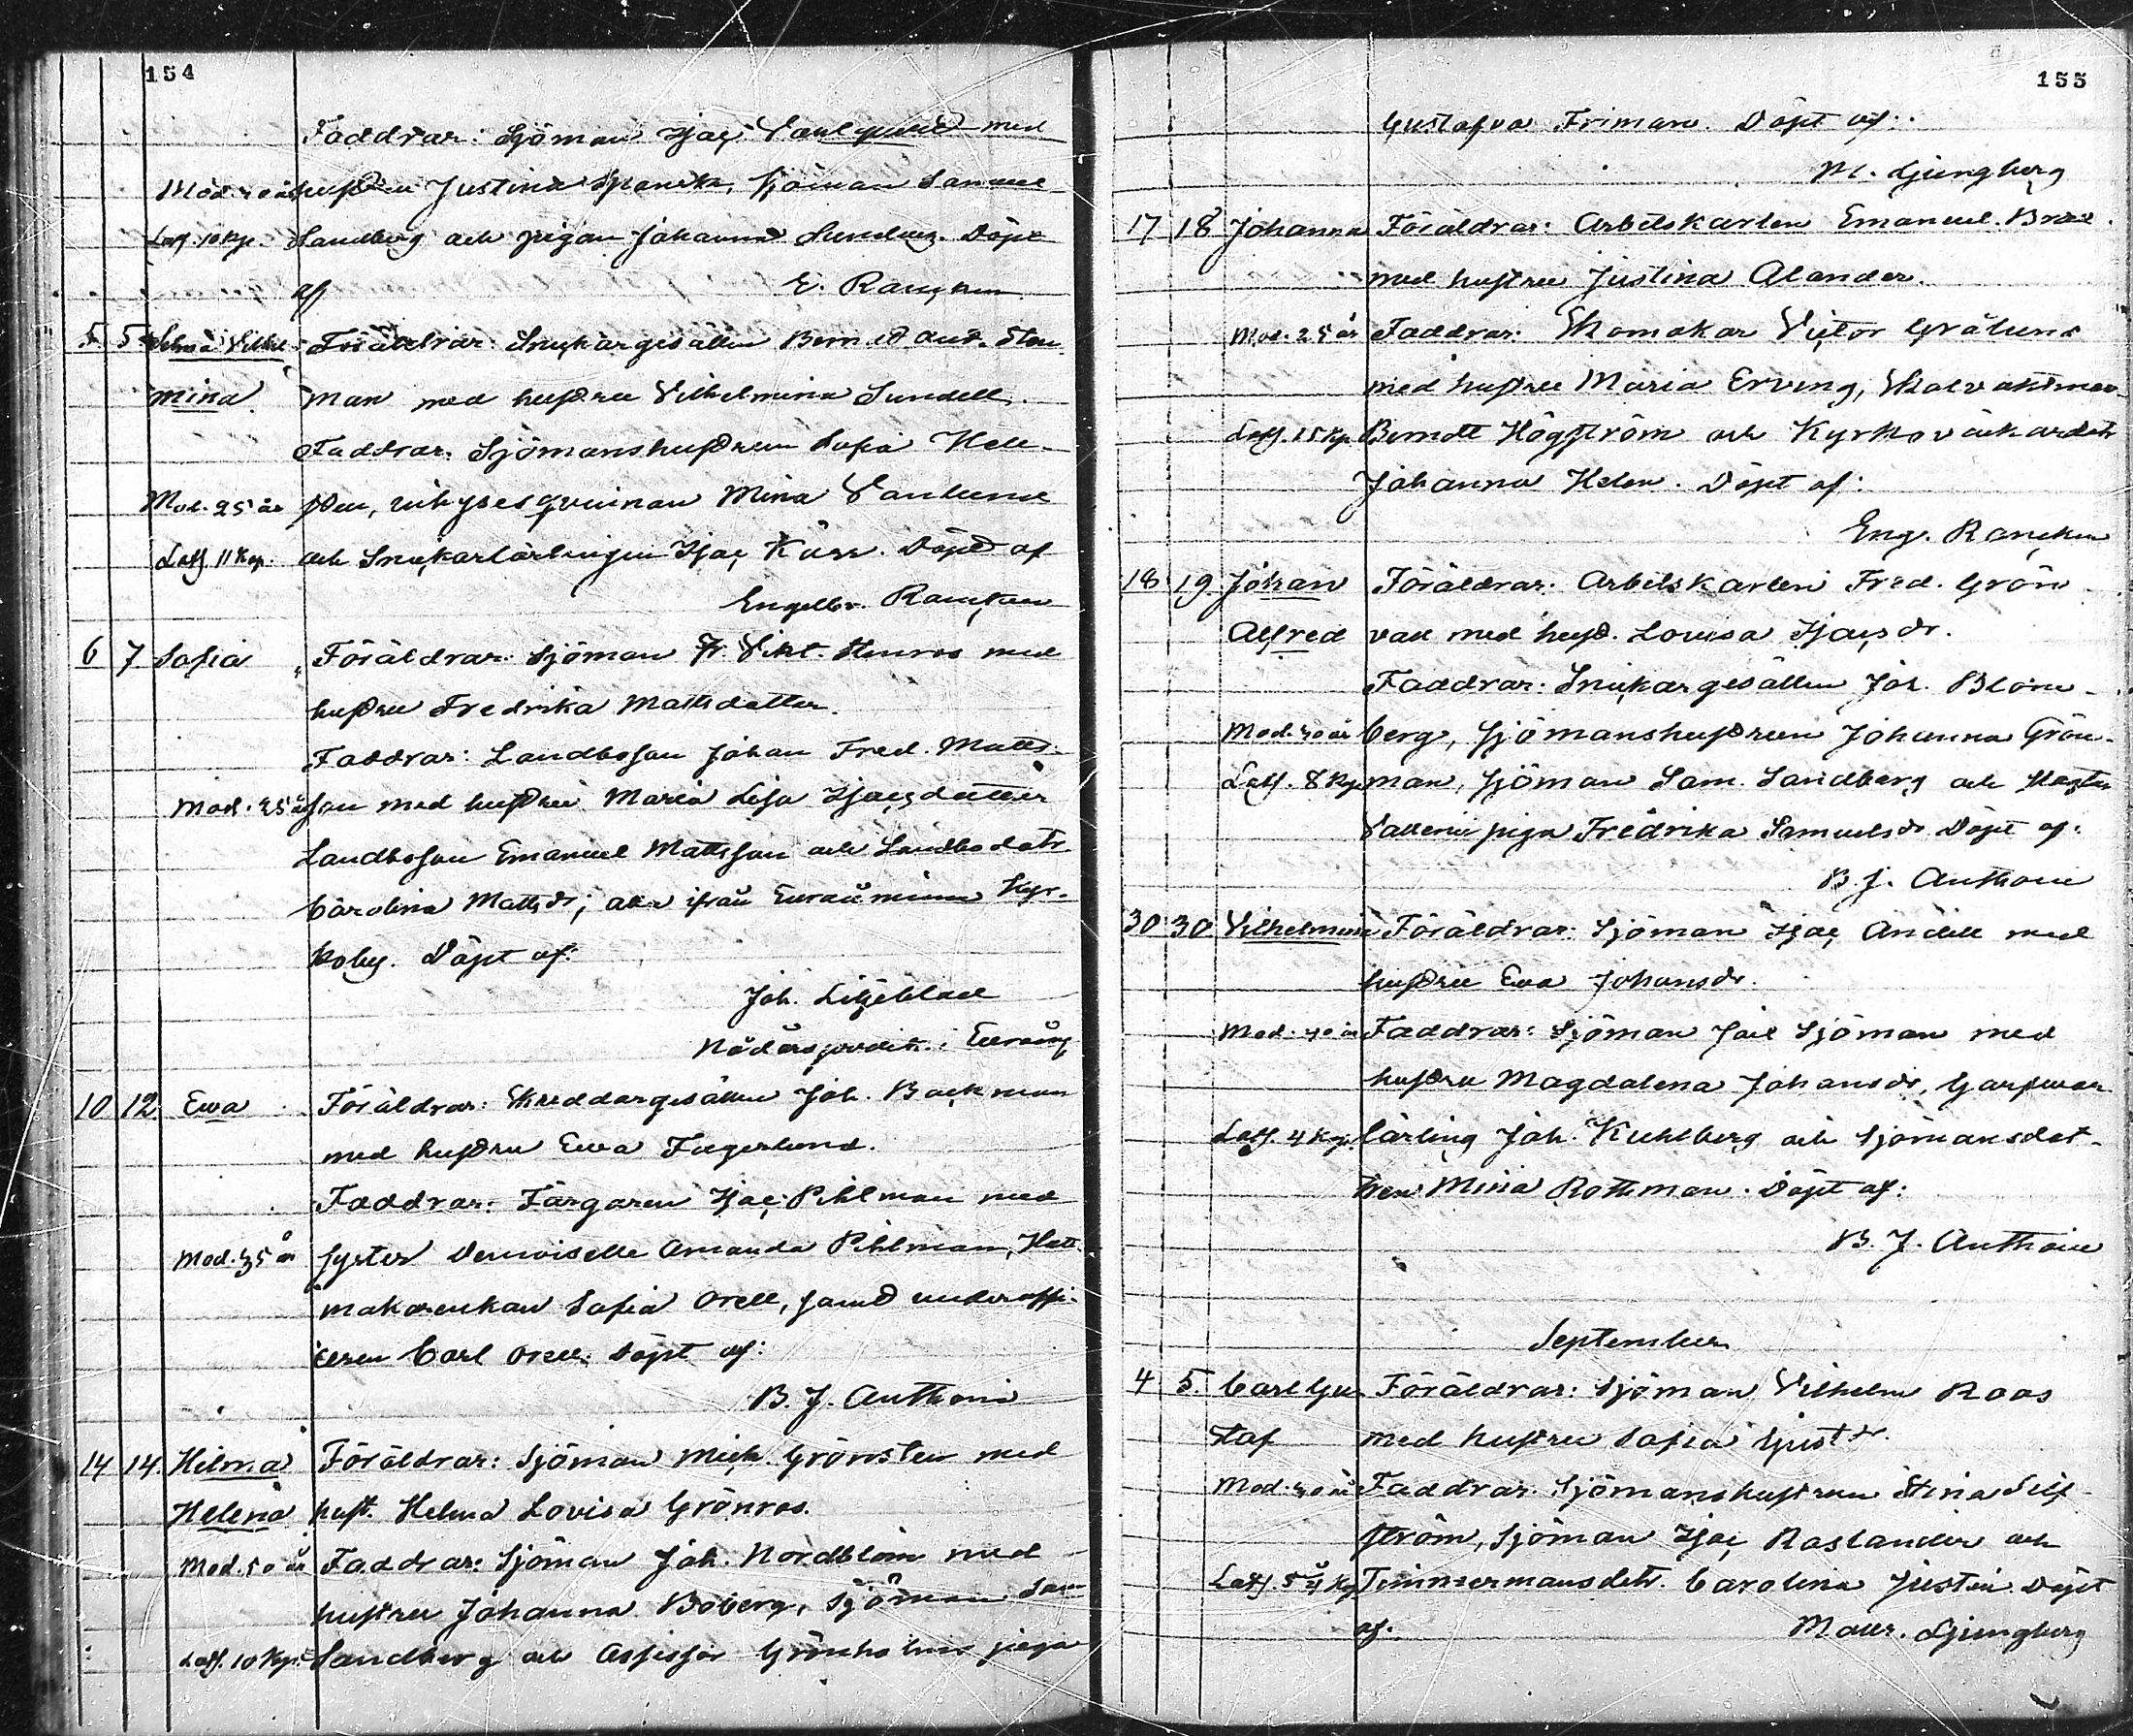 154
Faddrar: Sjöman Isac med
Mod. hustru Justina Spanck, Sjöman Samuel
Latf. 10 kp. Sandberg och pigan Johanna Döpt
af E. Rancken
5 5 Selma Vilhel- Föräldrar: Snickargesällen And. Sten-
mina man med hustru Vilhelmina Sundell.
Faddrar: Sjömanshustrun Sofia Hell-
Mod. 25 år qvinnan Mina
Latf. 11 kap. och Snickarlärlingen Isac Kårr. Döpt af
Engelbr. Rancken
6 7 Sofia Föräldrar: Sjöman Fr. Vikt. Stenros med
hustru Fredrika Mattsdotter.
Faddrar: Landboson Johan Fred. Matts-
Mod. 25 år son med hustru Maria Lisa Isacsdotter
Landboson Emanuel Mattsson och Landbodotr
Carolina Mattsdr, alla ifrån Euraåminne Kyr-
koby. Döpt af:
Joh. Liljeblad
Nådårspredik. i Euraåm
10 12. Ewa Föräldrar: Skreddargesällen Joh. Backman
med hustru Ewa Fagerlund.
Faddrar: Färgaren Isac Pihlman med
Mod. 35 år syster Demoiselle Amanda Pihlman, Hatt-
makareenkan Sofia Orell, samt underoffi-
ceren Carl Orell. Döpt af:
B. J. Anthoni
14 14. Hilma Föräldrar: Sjöman Mich. Grönsten med
Helena hust. Helena Lovisa Grönros.
Mod. 50 år Faddrar: Sjöman Joh. Nordblom med
hustru Johanna Boberg, Sjöman Sam
Latf. 10 kp. Sandberg och Assessor Grönholms piga
155
Gustafva Friman. Döpt af:
M. Ljungberg
17 18 Johanna Föräldrar: Arbetskarlen Emanuel
med hustru Justina Alander.
Mod. 25 år Faddrar: Skomakar Victor Grälund
med hustru Maria Erving,
Latf. 15 kp. Berndt Högström och Kyrkoväktardotr
Johanna Helen. Döpt af:
Eng. Rancken
18 19. Johan Föräldrar: Arbetskarlen Fred. Grön
Alfred vall med hust. Lovisa Isacsdr.
Faddrar: Snickargesällen Joh. Blom-
Mod. 40 år berg, Sjömanshustrun Johanna Grön-
Latf. 8 kp. man, Sjöman Sam. Sandberg och
piga Fredrika Samuelsdr. Döpt af:
B. J. Anthoni
30 30 Vilhelmina Föräldrar: Sjöman Isac Andell med
hustru Ewa Johansdr.
Mod. 40 år Faddrar: Sjöman Joel Sjöman med
hustru Magdalena Johansdr, Garfvar-
Latf. 4 kp. lärling Joh. Kuhlberg och Sjömansdot-
tren Mina Rothman. Döpt af:
B. J. Anthoni
September
4 5. Carl Gu- Föräldrar: Sjöman Vilhelm Roos
staf med hustru Sofia Gustdr.
Mod. 40 år Faddrar: Sjömanshustrun Stina Silf-
ström, Sjöman Isac Roslander och
Latf. 5 3/4 kp Timmermansdotr. Carolina Justin. Döpt
af: Matts. Ljungberg